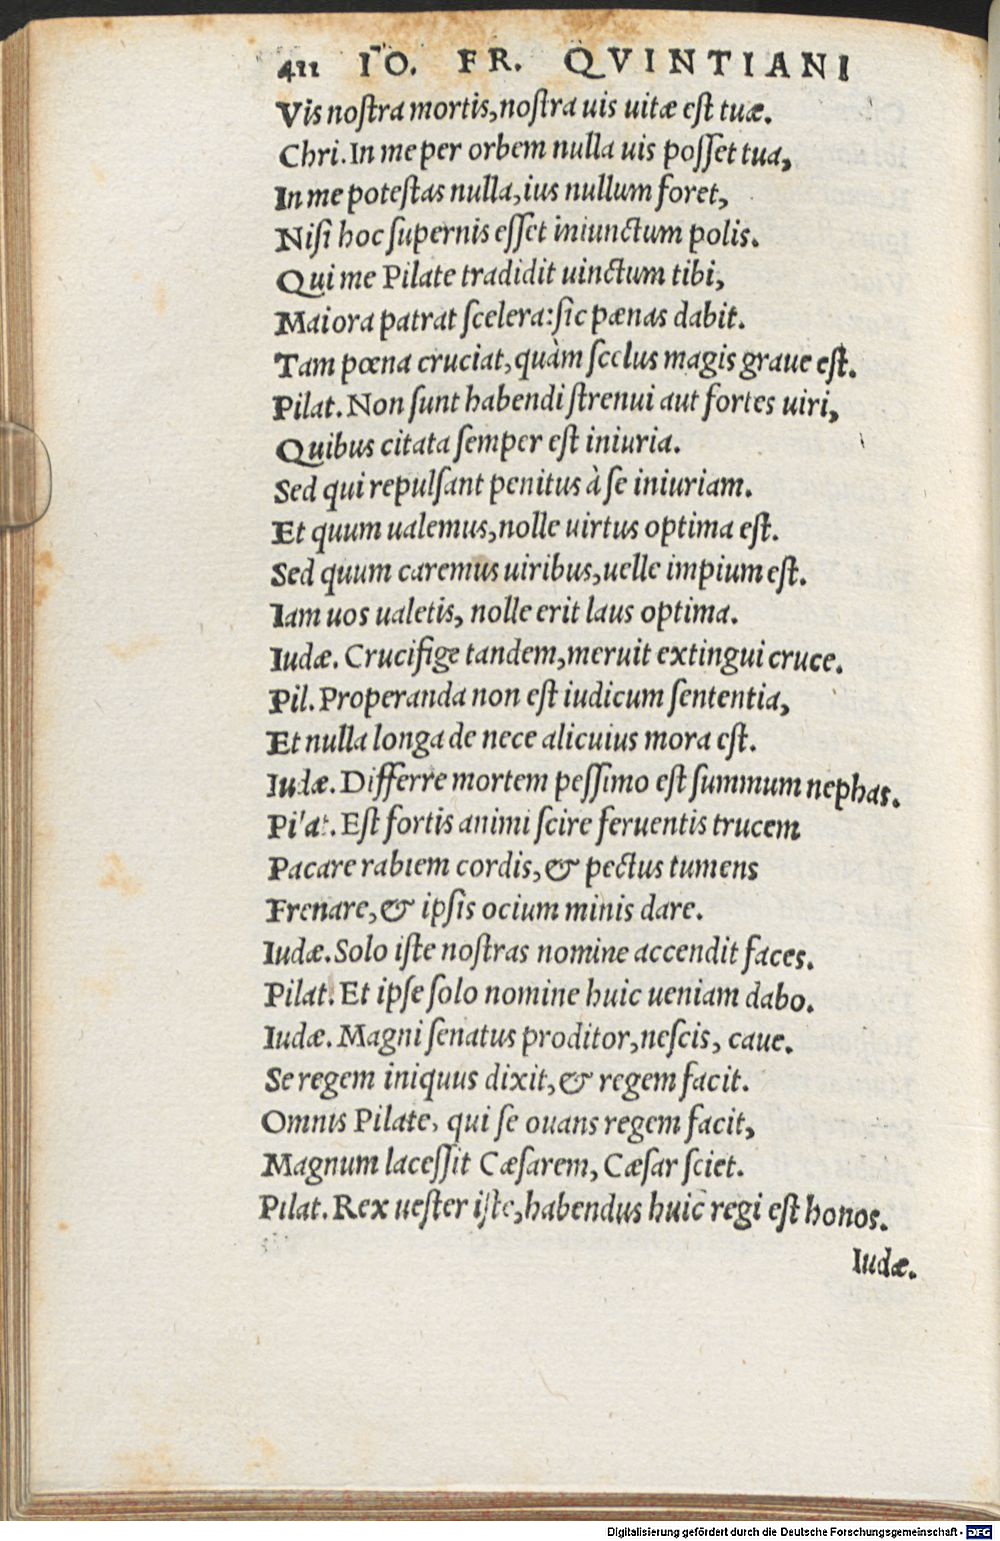 411 IO. FR. QVINTIANI
Vis nostra mortis, nostra uis uitæ est tuæ.
Chri. In me per orbem nulla uis posset tua,
In me potestas nulla, ius nullum foret,
Nisi hoc supernis esset iniunctum polis.
Qui me Pilate tradidit uinctum tibi,
Maiora patrat scelera: sic pænas dabit.
Tam pœna cruciat, quàm scelus magis graue est.
Pilat. Non sunt habendi strenui aut fortes uiri,
Quibus citata semper est iniuria.
Sed qui repulsant penitus à se iniuriam.
Et quum ualemus, nolle uirtus optima est.
Sed quum caremus uiribus, uelle impium est.
Iam uos ualetis, nolle erit laus optima.
Iudæ. Crucifige tandem, meruit extingui cruce.
Pil. Properanda non est iudicum sententia,
Et nulla longa de nece alicuius mora est.
Iudæ. Differre mortem pessimo est summum nephas.
Pilat. Est fortis animi scire feruentis trucem
Pacare rabiem cordis, & pectus tumens
Frenare, & ipsis ocium minis dare.
Iudæ. Solo iste nostras nomine accendit faces.
Pilat. Et ipse solo nomine huic ueniam dabo.
Iudæ. Magni senatus proditor, nescis, caue.
Se regem iniquus dixit, & regem facit.
Omnis Pilate, qui se ouans regem facit,
Magnum lacessit Cæsarem, Cæsar sciet.
Pilat. Rex uester iste, habendus huic regi est honos.
Iudæ.
Digitalisierung gefördert durch die Deutsche Forschungsgemeinschaft - DFG